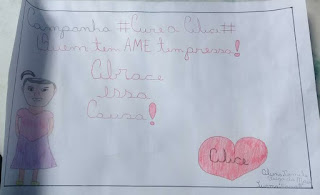 Campanha #Cure a Alice#
Quem tem AME tem pressa!
Abrace
essa
Causa!
Alice